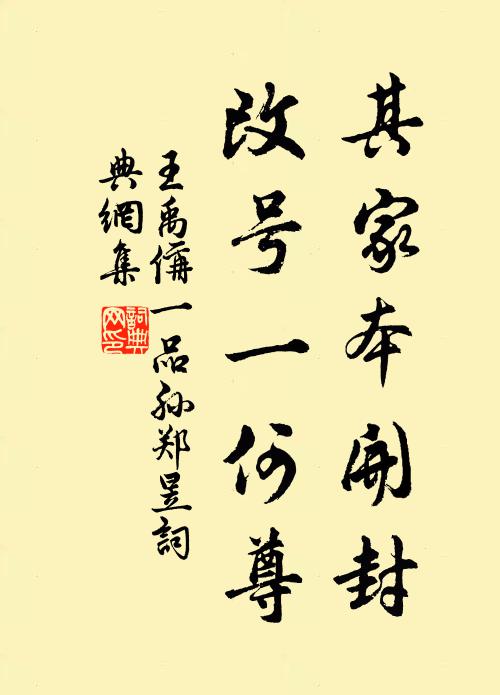 其家本开封
改号一何尊
王禹偁一品孙郑昱詞
典網集
詞典
网印